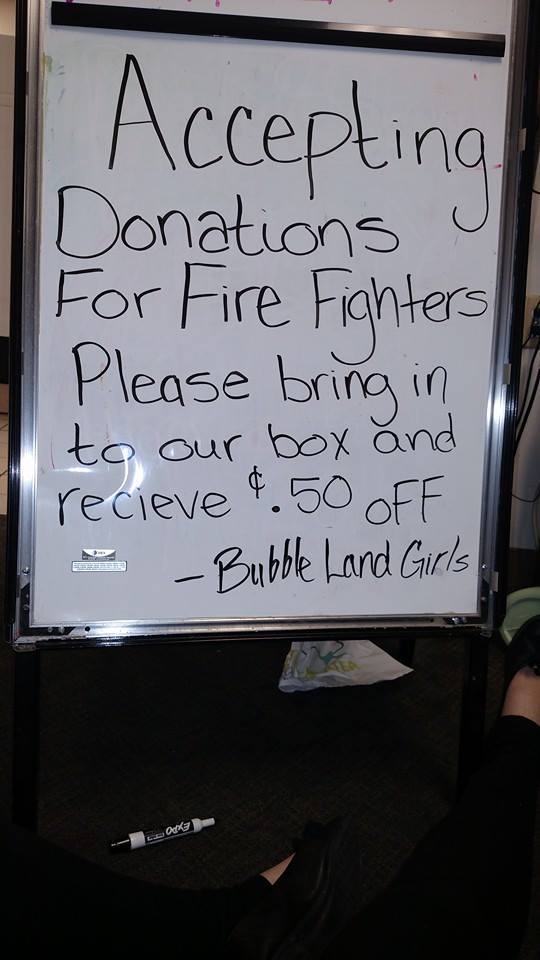 Accepting
Donations
For Fire Fighters
Please bring in
to our box and
recieve ¢.50 oFF
- Bubble Land Girls
EXPO